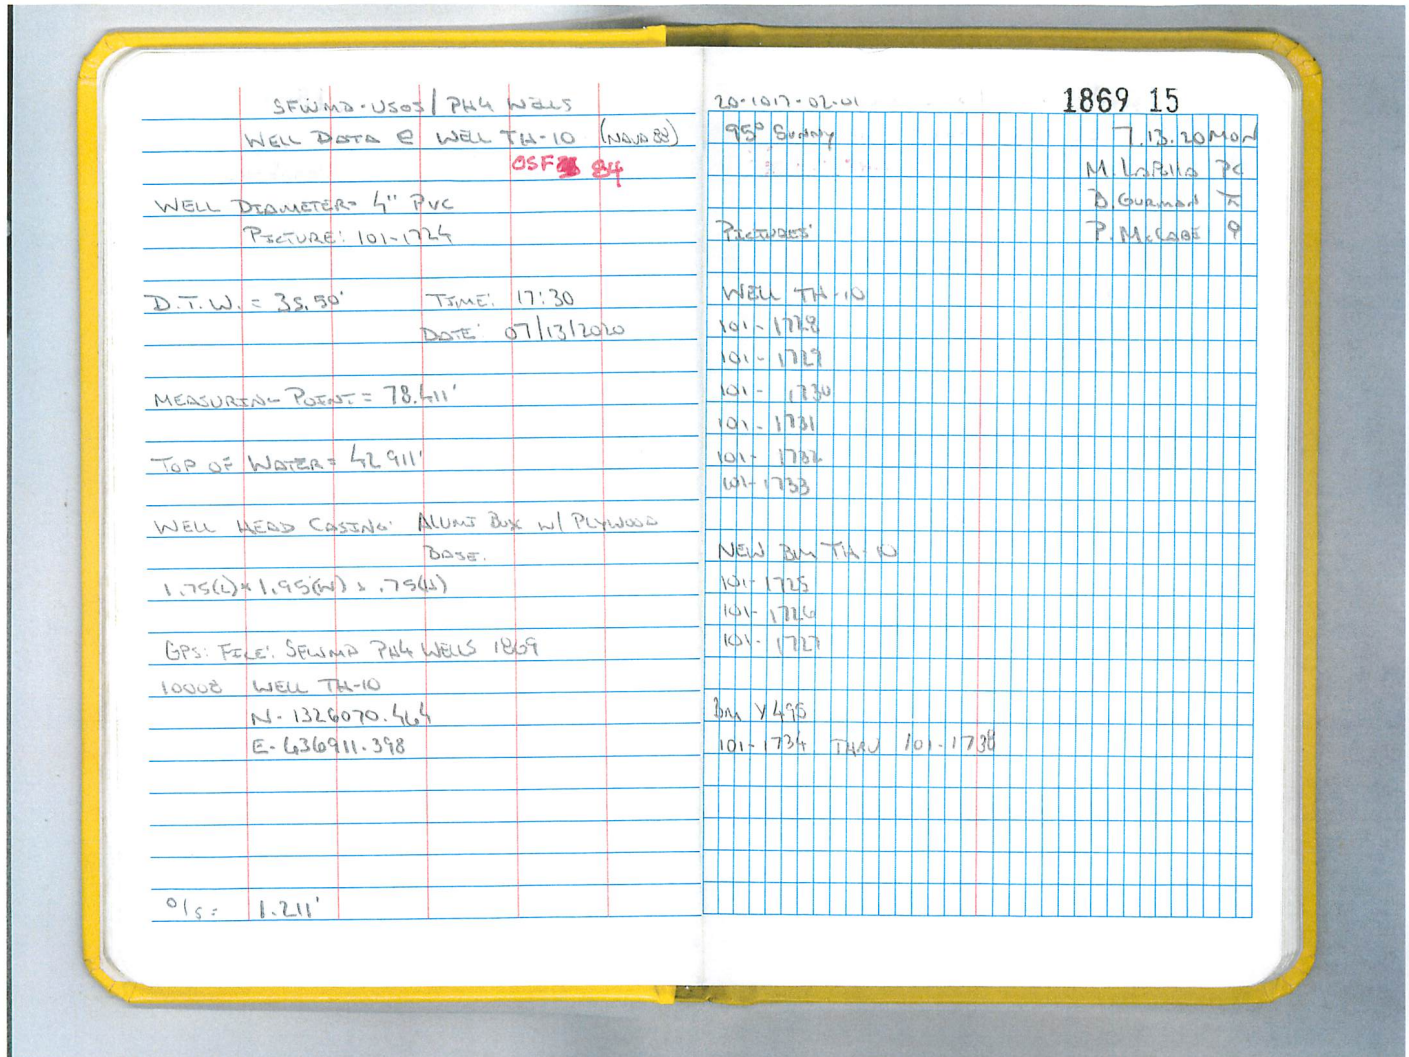 SFWMD-USGS/PH4 WELLS
WELL DATA @ WELL TH-10 (NAVD 88)
OSF 84
WELL DIAMETER= 4" PVC
PICTURE: 101-1724
D.T.W. = 35.50' TIME: 17:30
DATE: 07/13/2020
MEASURING POINT = 78.411'
TOP OF WATER= 42.911'
WELL HEAD CASING: ALUMI BOX W/ PLYWOOD
BASE.
1.75(L) x 1.95(W) x .75(H)
GPS: FILE: SFWMD PH4 WELLS 1869
10008 WELL TH-10
N- 1326070.464
E- 636911.398
O/S = 1.211'
20-1017-02-01
1869 15
95° SUNNY 7.13.20 MON
M. LaPilla PC
D. GURMAN
PICTURES: P. McCABE
WELL TH-10
101-1728
101-1729
101-1730
101-1731
101-1732
101-1733
NEW BM TH-10
101-1725
101-1726
101-1727
BM Y495
101-1734 THRU 101-1738